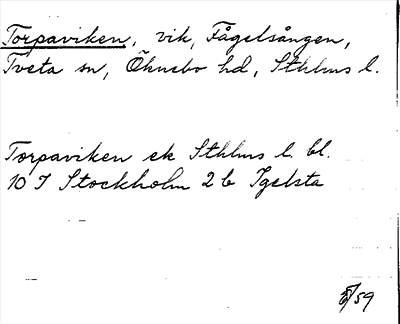 Torpaviken, vik, Fågelsången,
Tveta sn, Öknebo hd, Sthlms l.
Torpaviken ek Sthlms l. bl.
10 I Stockholm 2 b Igelsta
/59